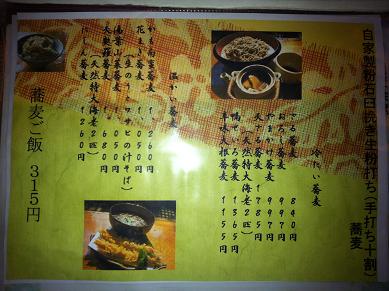 自家製粉石臼挽き生粉打ち(手打ち十割)
蕎麦
冷たい蕎麦
ざる蕎麦 840円
おろし蕎麦 997円
やまかけ蕎麦 997円
天ざる蕎麦 1785円
(天然特大海老2匹)
鴨せいろ蕎麦 1365円
辛味大根蕎麦 1155円
温かい蕎麦
かも南蛮蕎麦 1260円
花まき蕎麦 1050円
(生のり・ワサビの汁そば)
湯葉山菜蕎麦 1050円
天麩羅蕎麦 1680円
(天然特大海老2匹)
にしん蕎麦 1260円
蕎麦ご飯 315円